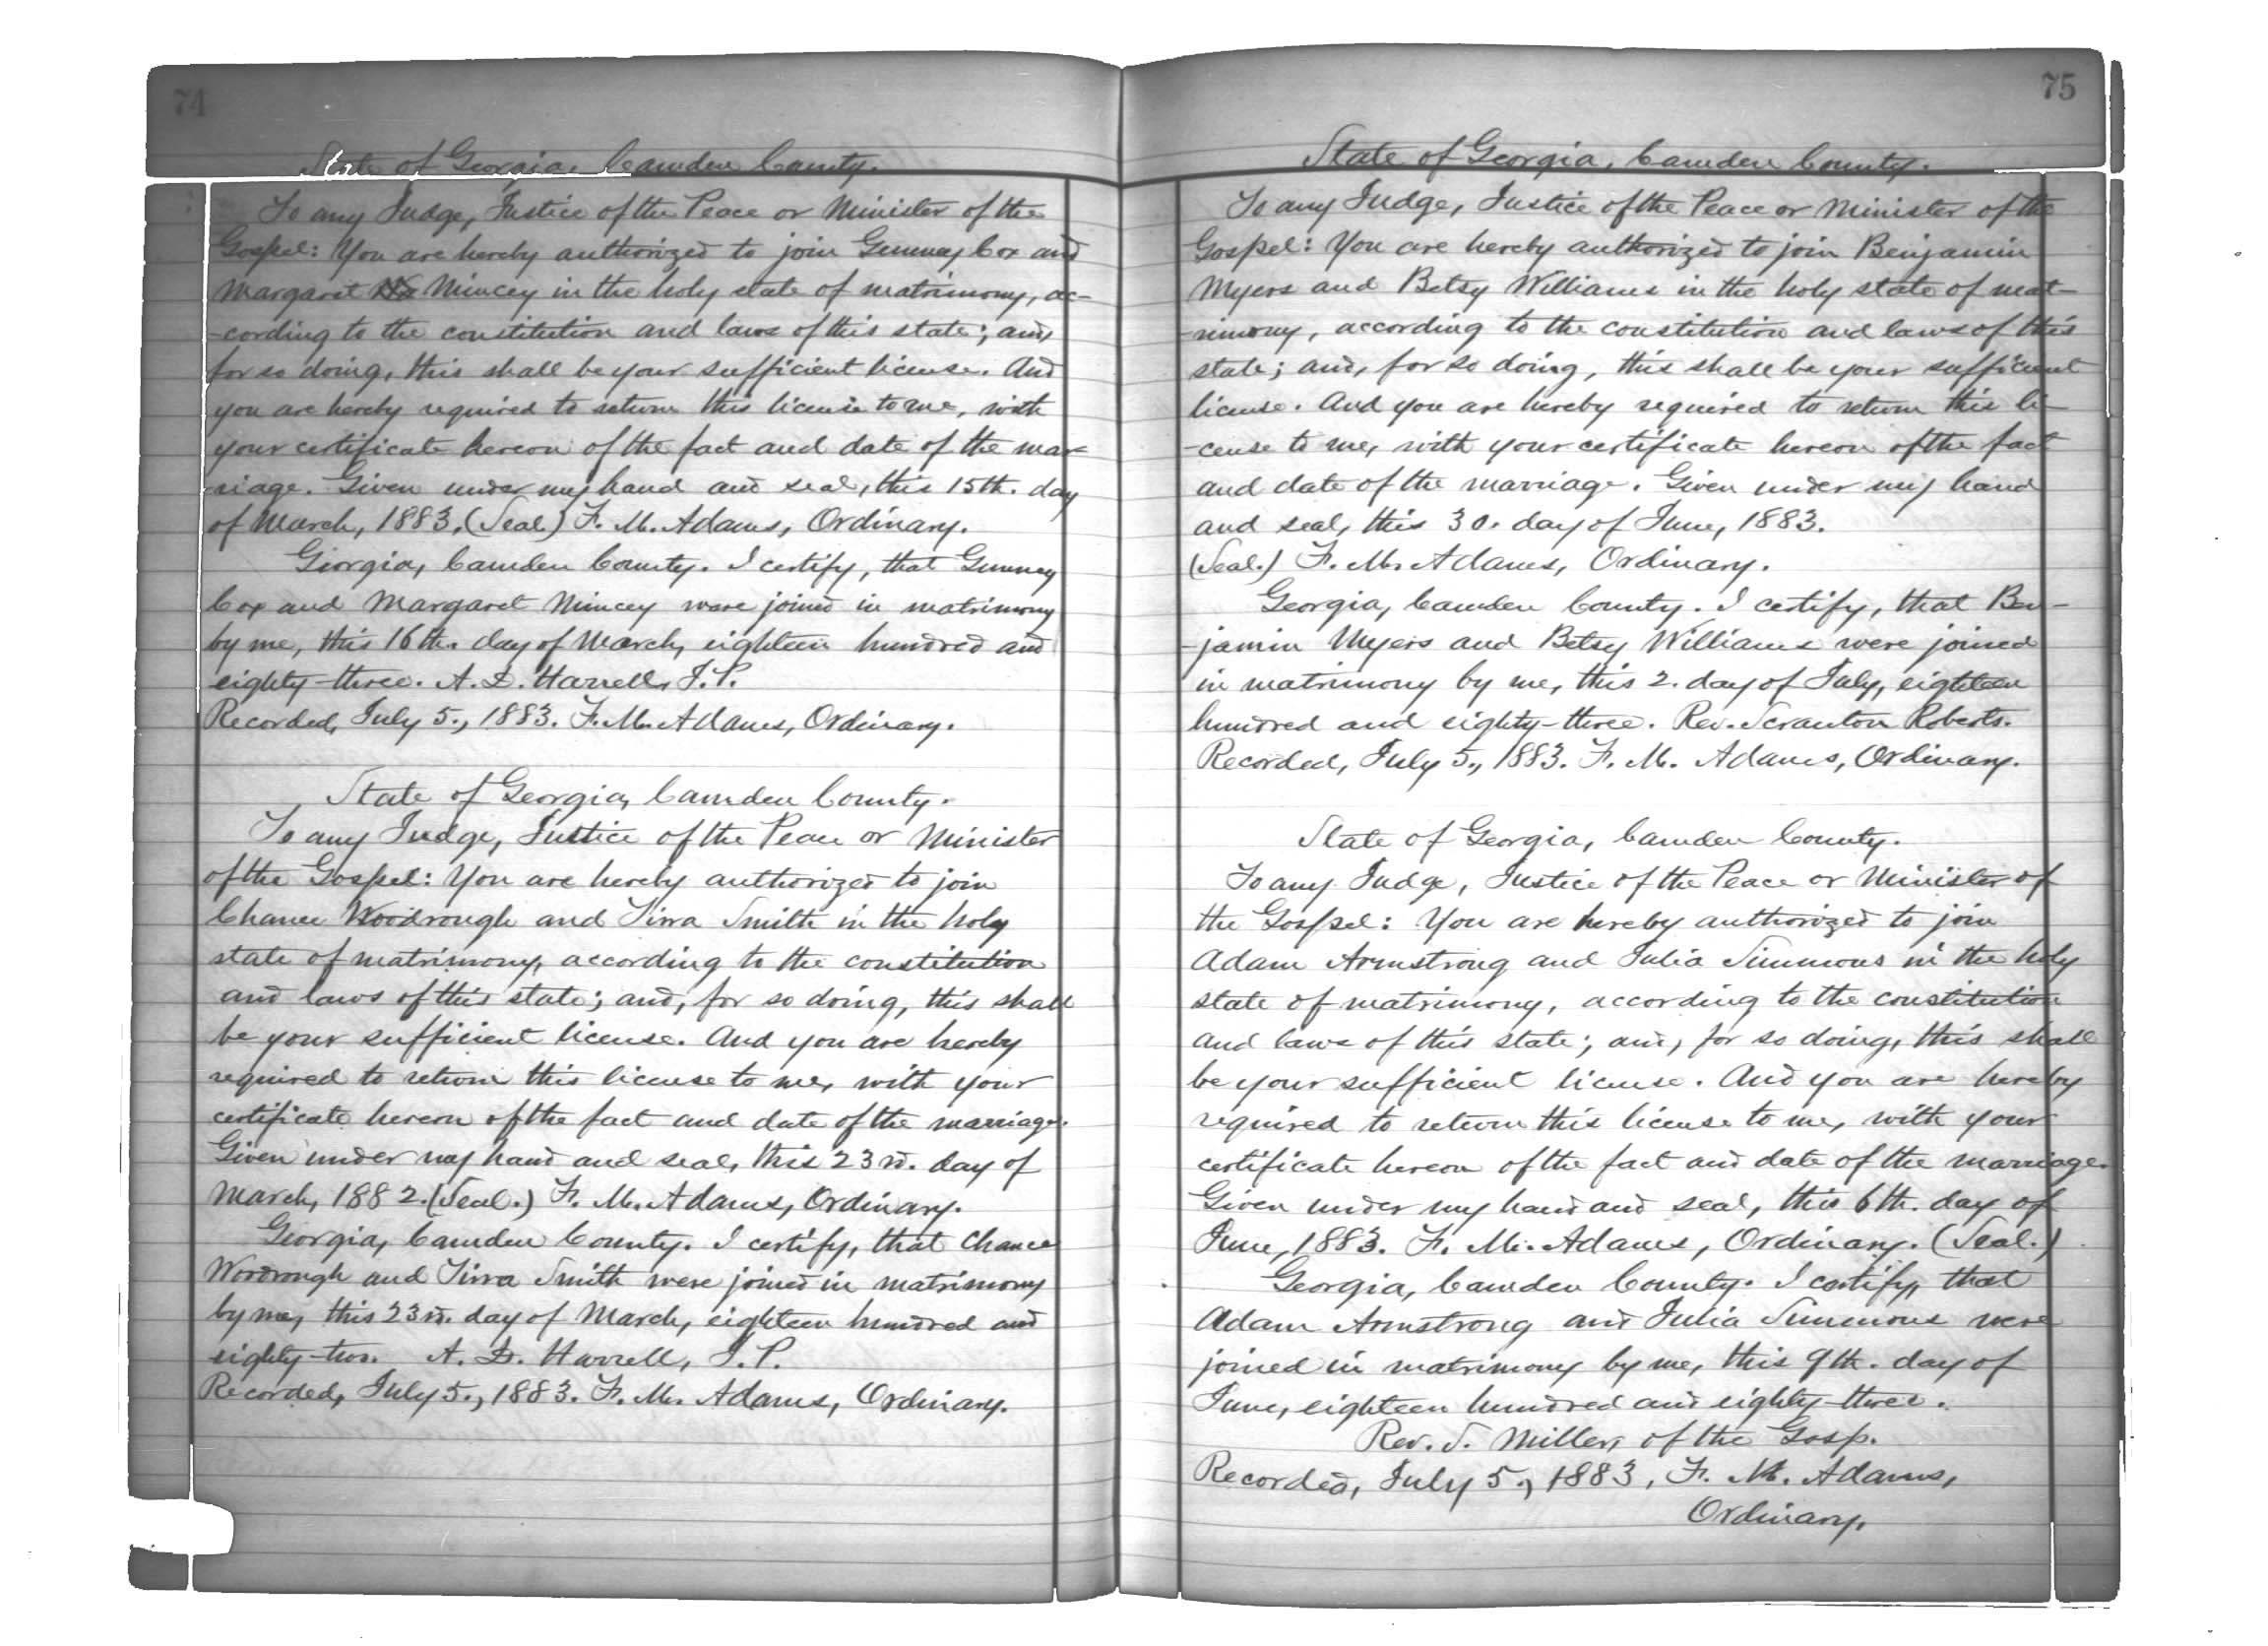 74
State of Georgia, Camden County.
To any Judge, Justice of the Peace or Minister of the
Gospel: You are hereby authorized to join Gemmey Cox and
Margaret Mincey in the holy state of matrimony, ac-
-cording to the constitution and laws of this state; and,
for so doing, this shall be your sufficient license. And
you are hereby required to return this license to me, with
your certificate hereon of the fact and date of the mar-
-riage. Given under my hand and seal, this 15th. day
of March, 1883. (Seal) F. M. Adams, Ordinary.
Georgia, Camden County. I certify, that Gemmey
Cox and Margaret Mincey were joined in matrimony
by me, this 16th. day of March, eighteen hundred and
eighty-three. A. D. Harrell, J. P.
Recorded, July 5., 1883. F. M. Adams, Ordinary.
State of Georgia, Camden County.
To any Judge, Justice of the Peace or Minister
of the Gospel: You are hereby authorized to join
Chance Woodrough and Tirra Smith in the holy
state of matrimony, according to the constitution
and laws of this state; and, for so doing, this shall
be your sufficient license. And you are hereby
required to return this license to me, with your
certificate hereon of the fact and date of the marriage.
Given under my hand and seal, this 23rd. day of
March, 1882. (Seal.) F. M. Adams, Ordinary.
Georgia, Camden County. I certify, that Chance
Woodrough and Tirra Smith were joined in matrimony
by me, this 23rd. day of March, eighteen hundred and
eighty-two. A. D. Harrell, J. P.
Recorded, July 5., 1883. F. M. Adams, Ordinary.
75
State of Georgia, Camden County.
To any Judge, Justice of the Peace or Minister of the
Gospel: You are hereby authorized to join Benjamin
Myers and Betsy Williams in the holy state of mat-
-rimony, according to the constitution and laws of this
state; and, for so doing, this shall be your sufficient
license. And you are hereby required to return this li-
-cense to me, with your certificate hereon of the fact
and date of the marriage. Given under my hand
and seal, this 30. day of June, 1883.
(Seal.) F. M. Adams, Ordinary.
Georgia, Camden County. I certify, that Ben-
-jamin Myers and Betsy Williams were joined
in matrimony by me, this 2. day of July, eighteen
hundred and eighty-three. Rev. Scranton Roberts.
Recorded, July 5., 1883. F. M. Adams, Ordinary.
State of Georgia, Camden County.
To any Judge, Justice of the Peace or Minister of
the Gospel: You are hereby authorized to join
Adam Armstrong and Julia Simmons in the holy
state of matrimony, according to the constitution
and laws of this state; and, for so doing, this shall
be your sufficient license. And you are hereby
required to return this license to me, with your
certificate hereon of the fact and date of the marriage.
Given under my hand and seal, this 6th. day of
June, 1883. F. M. Adams, Ordinary. (Seal.)
Georgia, Camden County. I certify, that
Adam Armstrong and Julia Simmons were
joined in matrimony by me, this 9th. day of
June, eighteen hundred and eighty-three.
Rev. S. Miller, of the Gosp.
Recorded, July 5., 1883, F. M. Adams,
Ordinary.